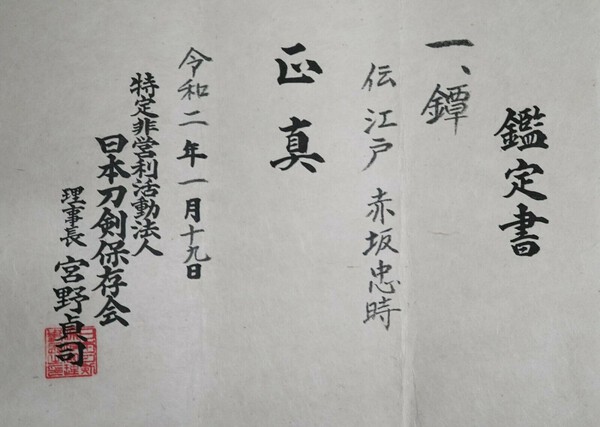 鑑定書
一、鐔
伝 江戸 赤坂忠時
正真
令和二年一月十九日
特定非営利活動法人
日本刀剣保存会
理事長 宮野貞司